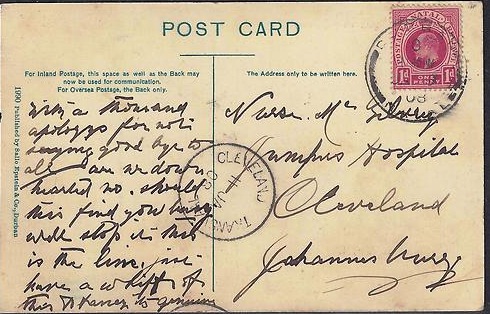 POST CARD
For Inland Postage, this space as well as the Back may
now be used for communication.
For Oversea Postage, the Back only.
The Address only to be written here.
1090 Published by Sallo Epstein & Co., Durban
With a thousand
apologys for not
saying good bye to
all are we down
hearted no. should
this find you
well stop it this
is the line, just
have a whiff of
this is genuine
Nurse Mc
Hospital
Cleveland
Johannesburg
POSTAGE
REVENUE
NATAL
1d ONE PENNY 1d
08
CLEVELAND
11
JA
08
TRANSVAAL